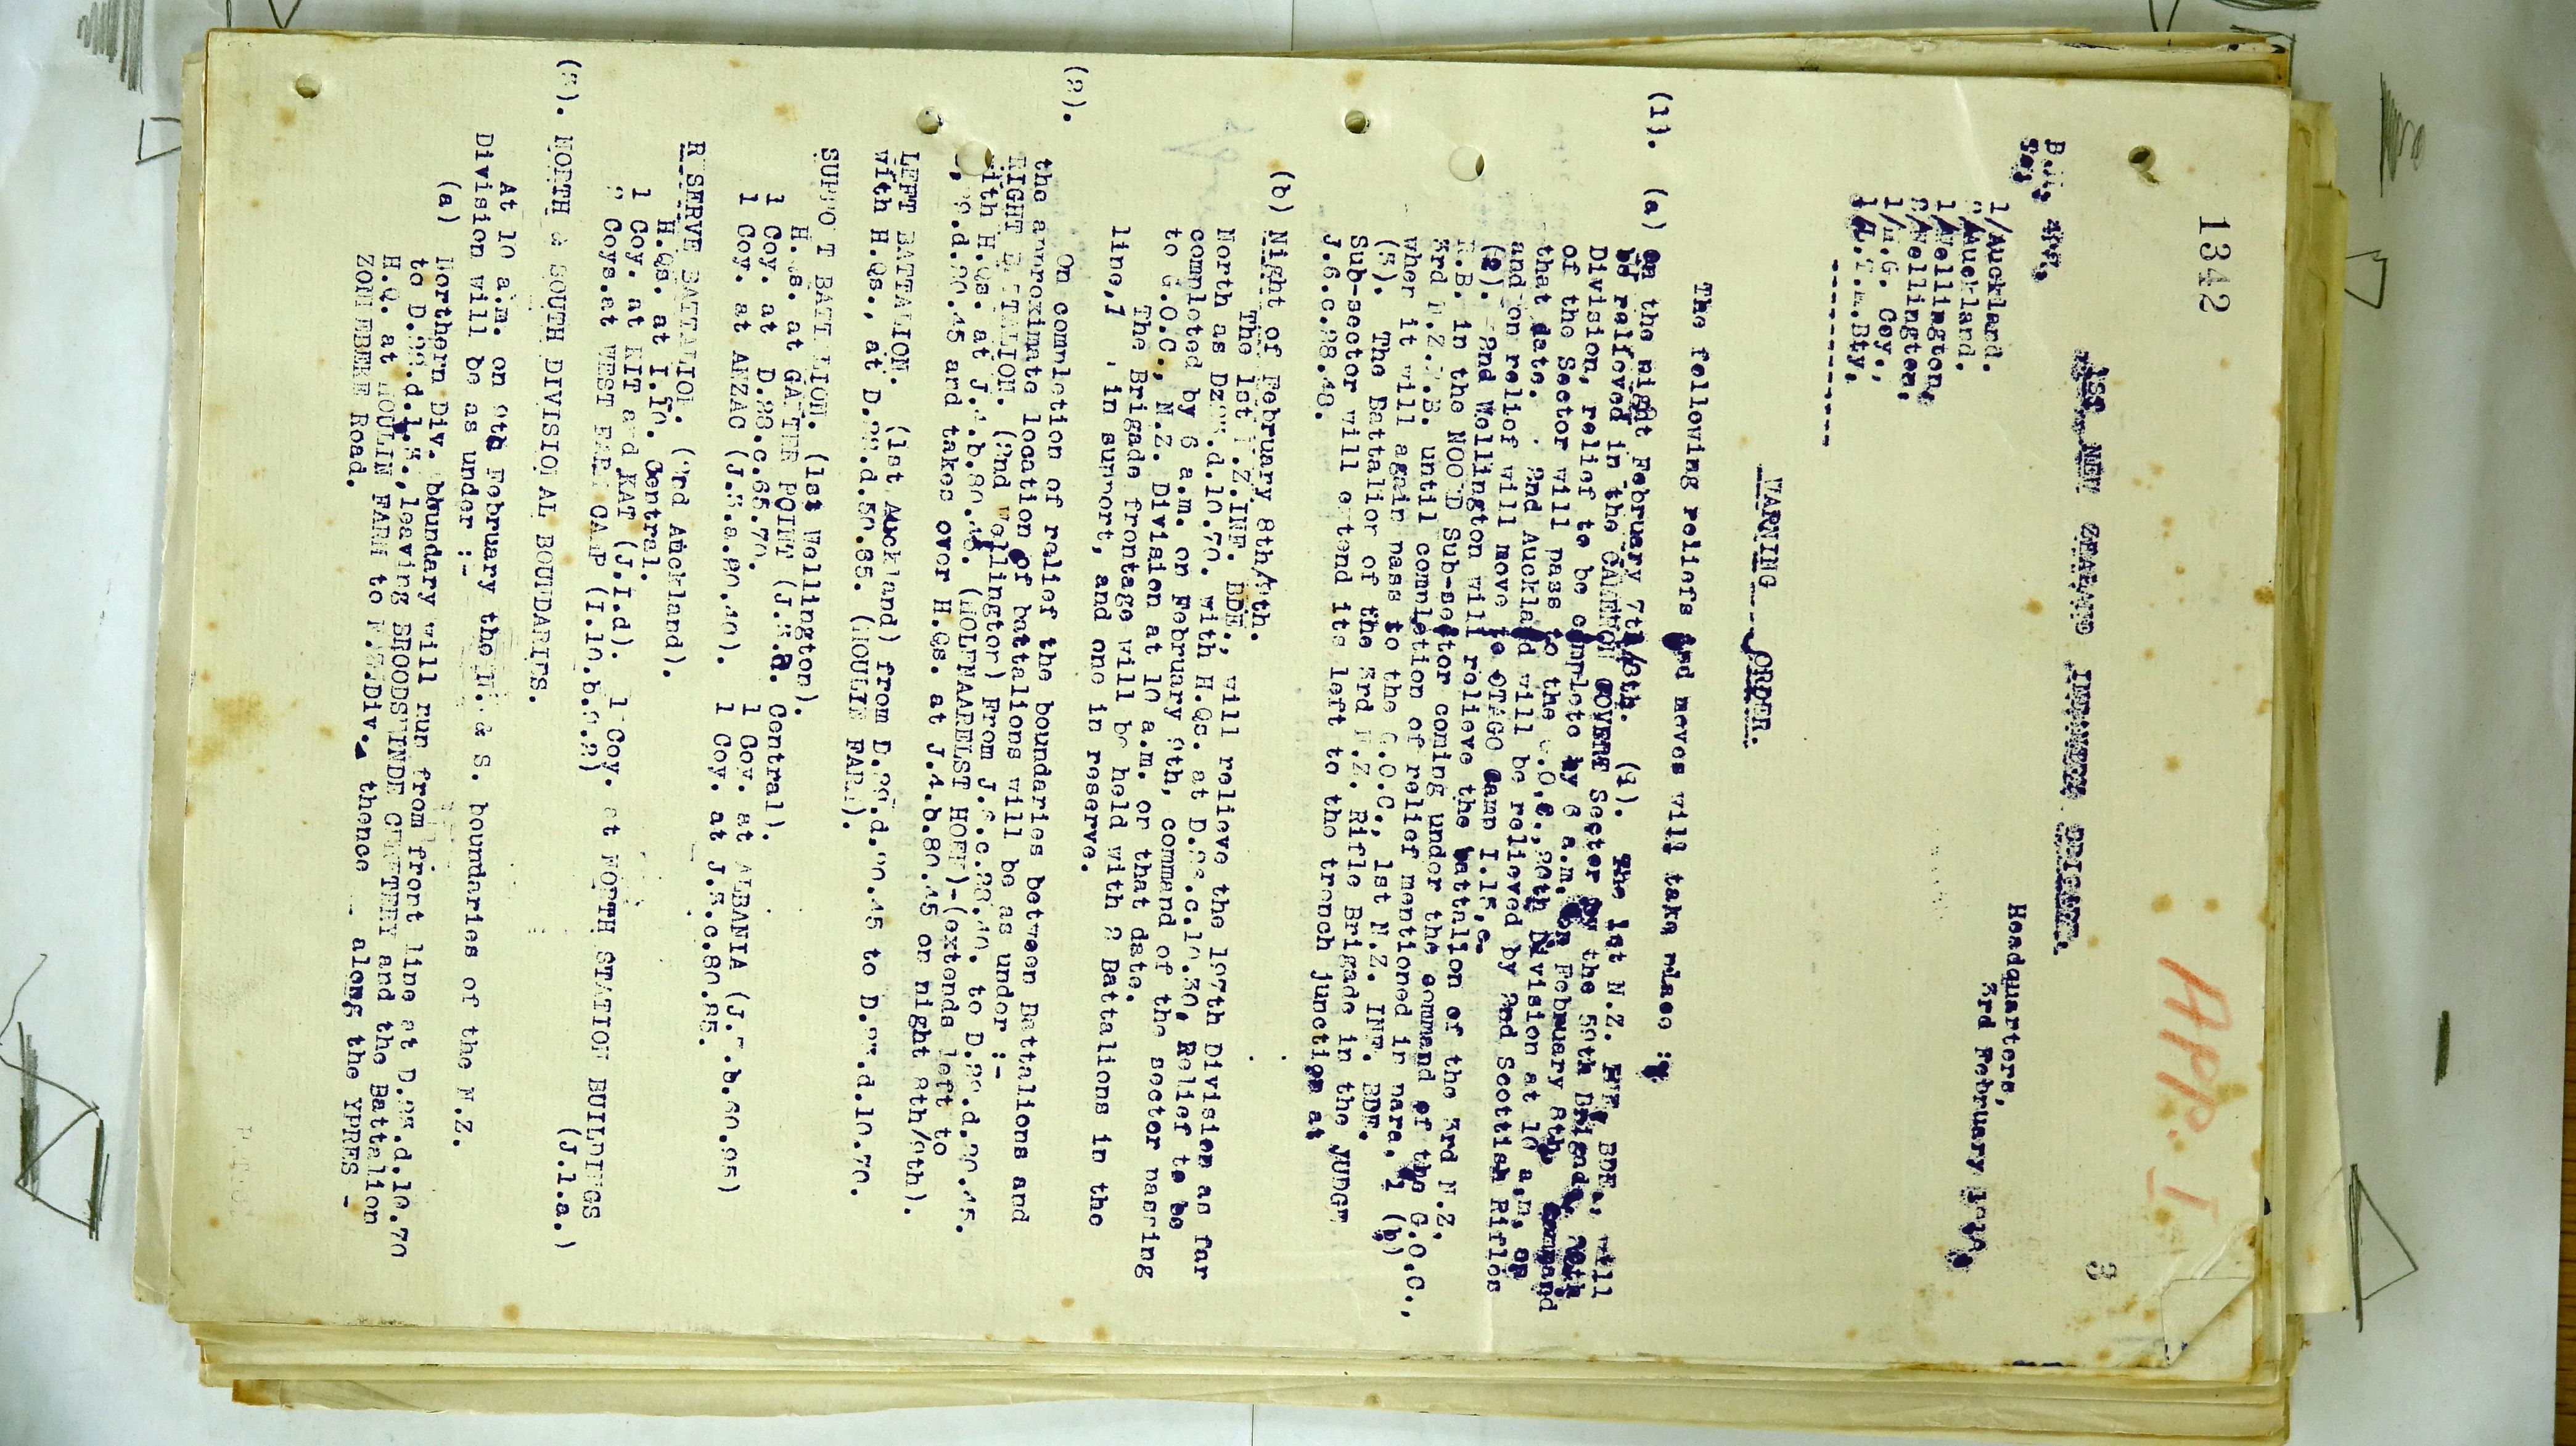 1342
APP. I.
3
1st NEW ZEALAND INFANTRY BRIGADE.
Headquarters,
3rd February
B.M. 
1/Auckland.
2/Auckland.
1/Wellington,
2/Wellington,
1/M.G. Coy.,
1/L.T.M.Bty,
WARNING ORDER.
The following reliefs and moves will take place :-
(1). (a) On the night February 7th/8th. (1). The 1st N.Z. INF. BDE., will
be relieved in the CAMERON COVERT Sector by the Brigade,
Division, relief to be complete by 6 a.m. on February 8th. Command
of the Sector will pass to the G.O.C., Division at 10 a.m. on
that date. 2nd Auckland will be relieved by 2nd Scottish Rifles
and on relief will move to OTAGO Camp I.15.c.
(2). 2nd Wellington will relieve the battalion of the 3rd N.Z.
R.B. in the Sub-sector coming under the command of the G.O.C.,
3rd N.Z.R.B. until completion of relief mentioned in para. 1 (b)
when it will again pass to the G.O.C., 1st N.Z. INF. BDE.
(3). The Batalion of the 3rd N.Z. Rifle Brigade in the JUDGE
Sub-sector will extend its left to the trench junction at
J.6.c.28.48.
(b) Night of February 8th/9th.
The 1st N.Z.INF. BDE., will relieve the 197th Division as far
North as with H.Qs. at Relief to be
completed by 6 a.m. on February 9th, command of the sector passing
to G.O.C., N.Z. Division at 10 a.m. on that date.
The Brigade frontage will be held with 2 Battalions in the
line,1 in support, and one in reserve.
(2). On completion of relief the boundaries between Battalions and
the approximate location of battalions will be as under :-
RIGHT BATTALION. (2nd Wellington) From
with H.Qs. at (MOLENAARELST HOEK)-(extends left to
and takes over H.Qs. at J.4.b.80.45 on night 8th/9th).
LEFT BATTALION. (1st Auckland) from
with H.Qs., at (MOULIN FARM).
SUPPORT BATTALION. (1st Wellington).
H.Qs. at GARTER POINT Central).
1 Coy. at D.28.c.65.70. 1 Coy. at ALBANIA
1 Coy. at ANZAC 1 Coy. at
RESERVE BATTALION. (2nd Auckland).
H.Qs. at I.10. Central.
1 Coy. at KIT and KAT (J.I.d). 1 Coy. at NORTH STATION BUILDINGS
Coys.at WEST FARM CAMP (J.1.a.)
(3). NORTH & SOUTH DIVISIONAL BOUNDARIES.
At 10 a.m. on 9th February the N. & S. boundaries of the N.Z.
Division will be as under :-
(a) Northern Div. boundary will run from front line at
to leaving BROODSEINDE CEMETERY and the Battalion
H.Q. at MOULIN FARM to N.Z.Div., thence along the YPRES -
ZONNEBEKE Road.